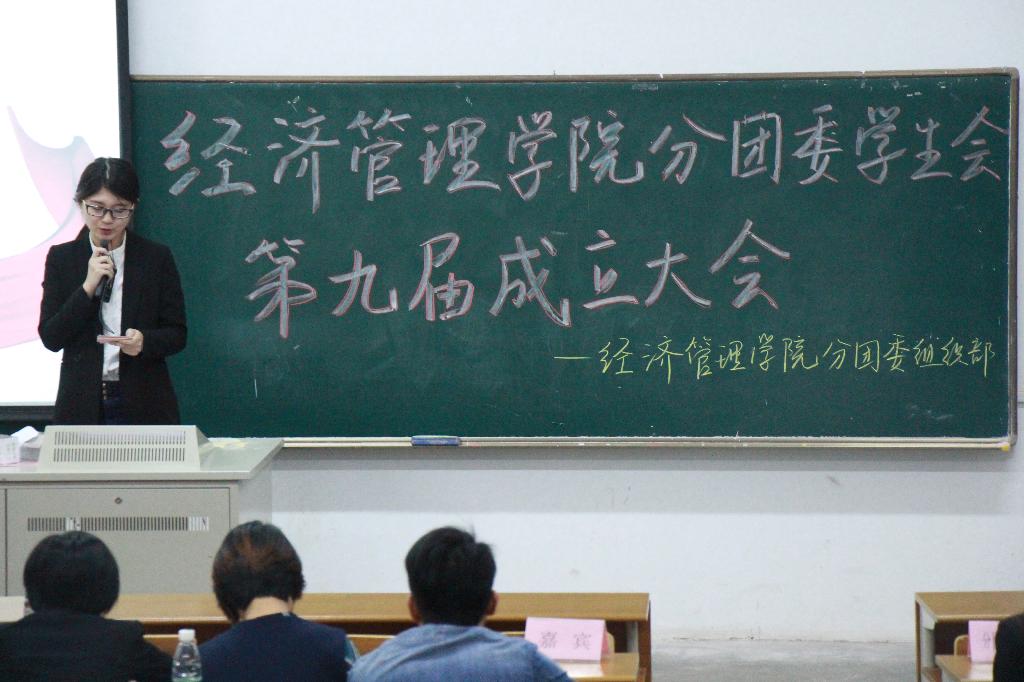 经济管理学院分团委学生会
第九届成立大会
—经济管理学院分团委组织部
嘉宾